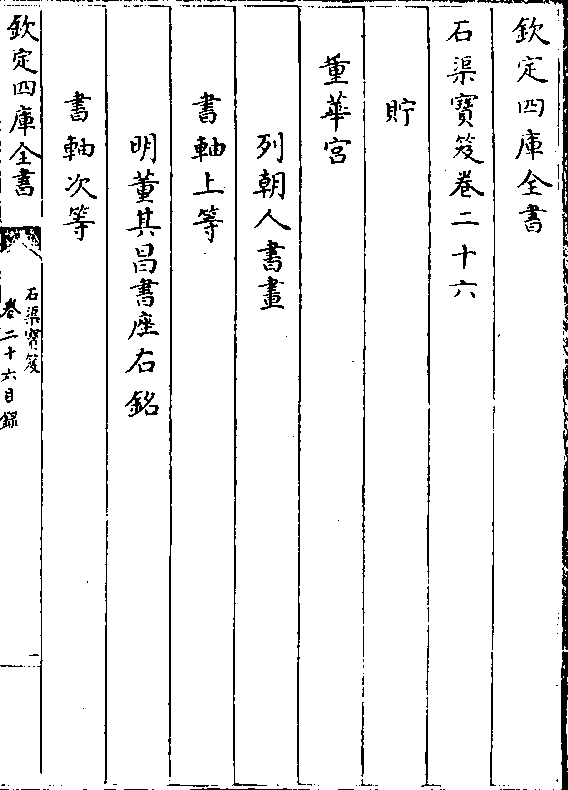 欽定四庫全書
石渠寶笈卷二十六
貯
重華宮
列朝人書畫
書軸上等
明董其昌書座右銘
書軸次等
欽定四庫全書
石渠寶笈
卷二十六目錄
一